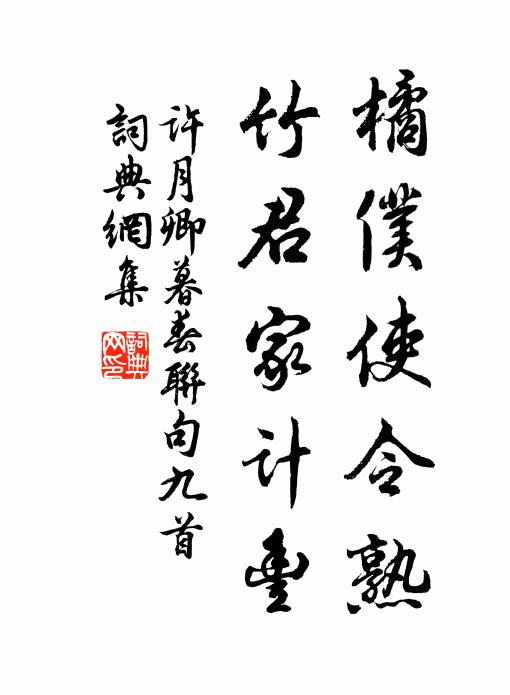 橘僕使令熟
竹君家計豐
許月卿暮春聯句九首
詞典網集
詞典網印